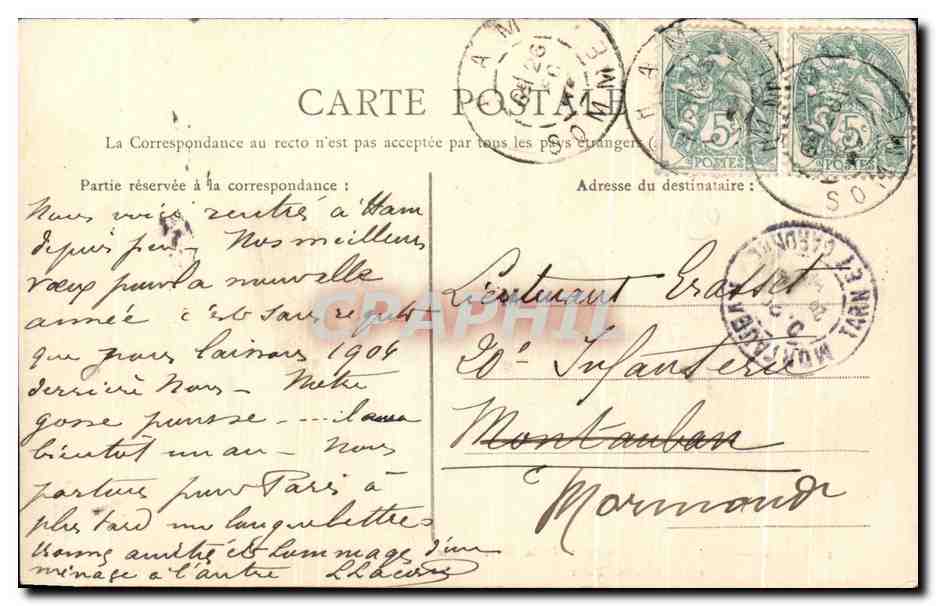 CARTE POSTALE
La Correspondance au recto n'est pas acceptée par tous les pays étrangers
Partie réservée à la correspondance :
Adresse du destinataire :
Nous voici rentrés à Ham
depuis peu. Nos meilleurs
vœux pour la nouvelle
année c'est sans regret
que nous laissons 1904
derrière nous - Notre
gosse pousse - - - - il aura
bientôt un an - Nous
partons pour Paris à
plus tard une longue lettre -
bonne amitié et hommage d'un
ménage à l'autre
Lieutenant Erasset
20e Infanterie
Montauban
Marmande
HAM
SOMME
HAM
SOMME
SOMME
5c
POSTES
5c
POSTES
MONTAUBAN
TARN ET GARONNE
CPAPHIL